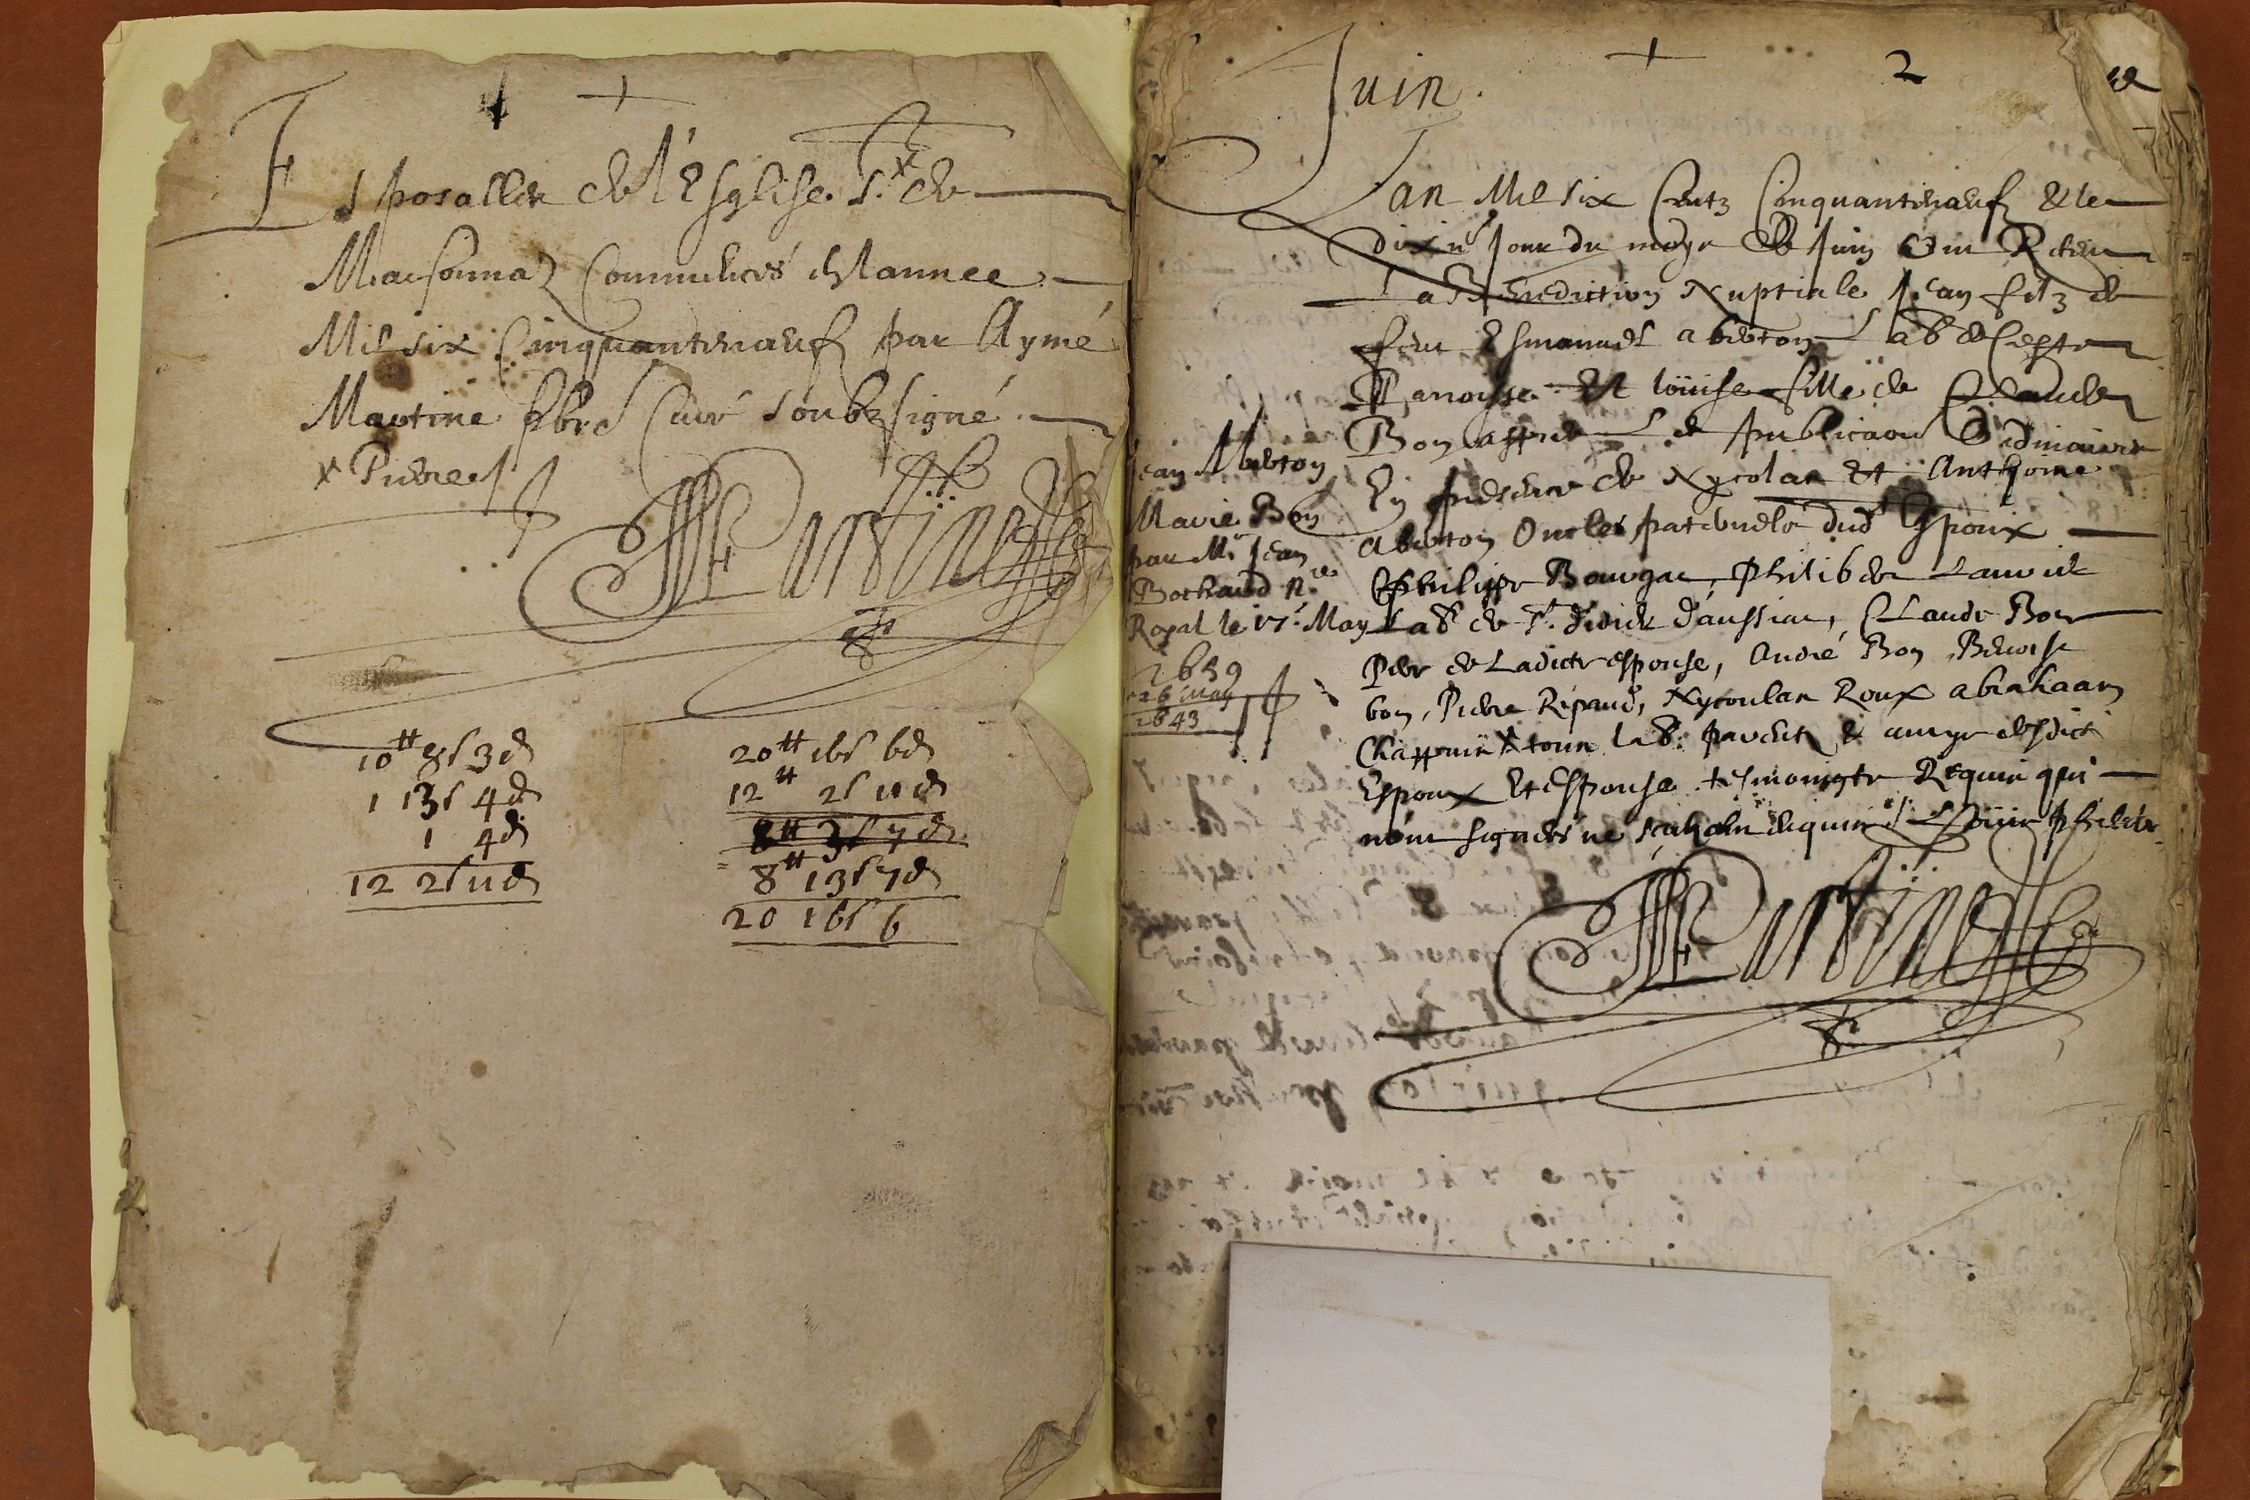 Esposaller de l'Esglise S.x de
Maesonnaz Commencés de lannee
Mil six Cinquanteneuf par Aymé
Martine pbre Curé soubzsigné
x Pierre
Martine
10tt 8s 3d
1 13s 4d
1 4d
12 2s 11d
20tt 16s 6d
12tt 2s 11d
8tt 3s 7d
8tt 13s 7d
20 16s 6
2
Juin.
Lan Mil six Centz Cinquanteneuf & le
dix jour du moys de Juin Ont Receu
la Benediction Nuptiale Jean filz de
feu Esmanuel aberton lab de Ceste
Paroisse Et Louise fille de Claude
Bon apres Les publicaons Ordinaires
En presence de Nycolas Et Anthoine
aberton Oncles paternels dud Espoux
Philippe Bourgae, Philiber Lauvie
Lab de St. Didier daussiac, Claude Bon
Pere de Ladicte espouse, André Bon, Benoist
bon, Pierre Ripaud, Nycoulas Roux abrahaam
Chappuis tous lab. parents & amys desdicts
Espoux Et Espouse tesmoingts Requis qui
nont signés ne sçachans enquis
Martine
Jean Aberton
Marie Bon
par Mr Jean
Bochard N.re
Royal le 17e May
1659
26 May
1643